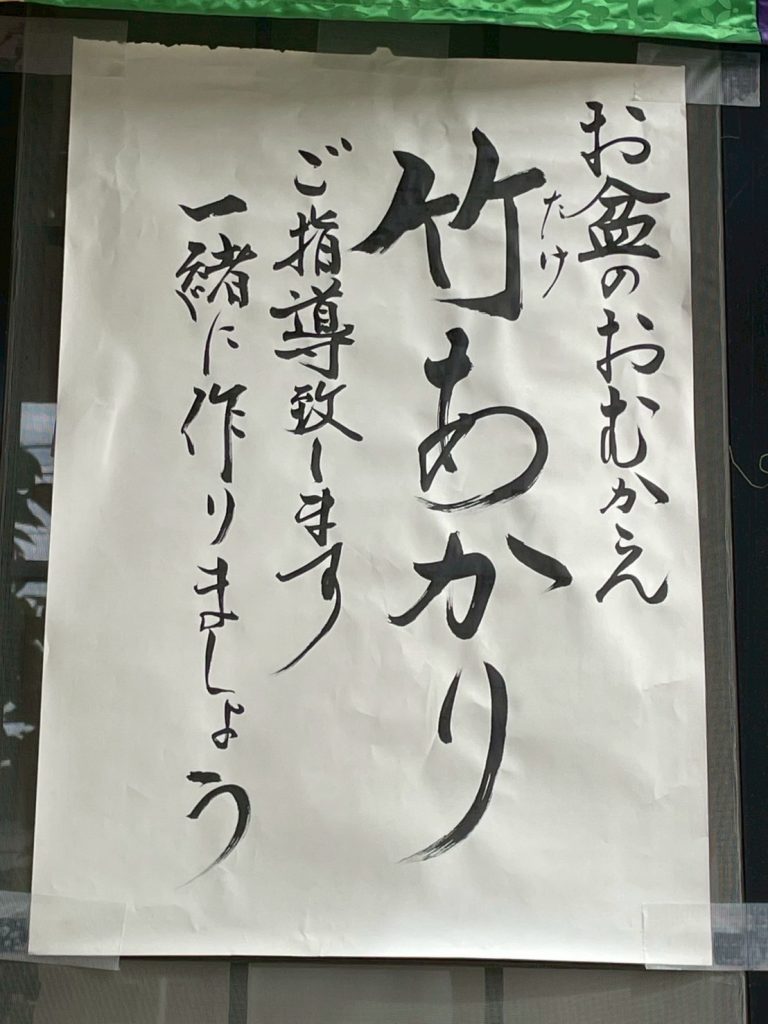 お盆のおむかえ
竹あかり
たけ
ご指導致します
一緒に作りましょう